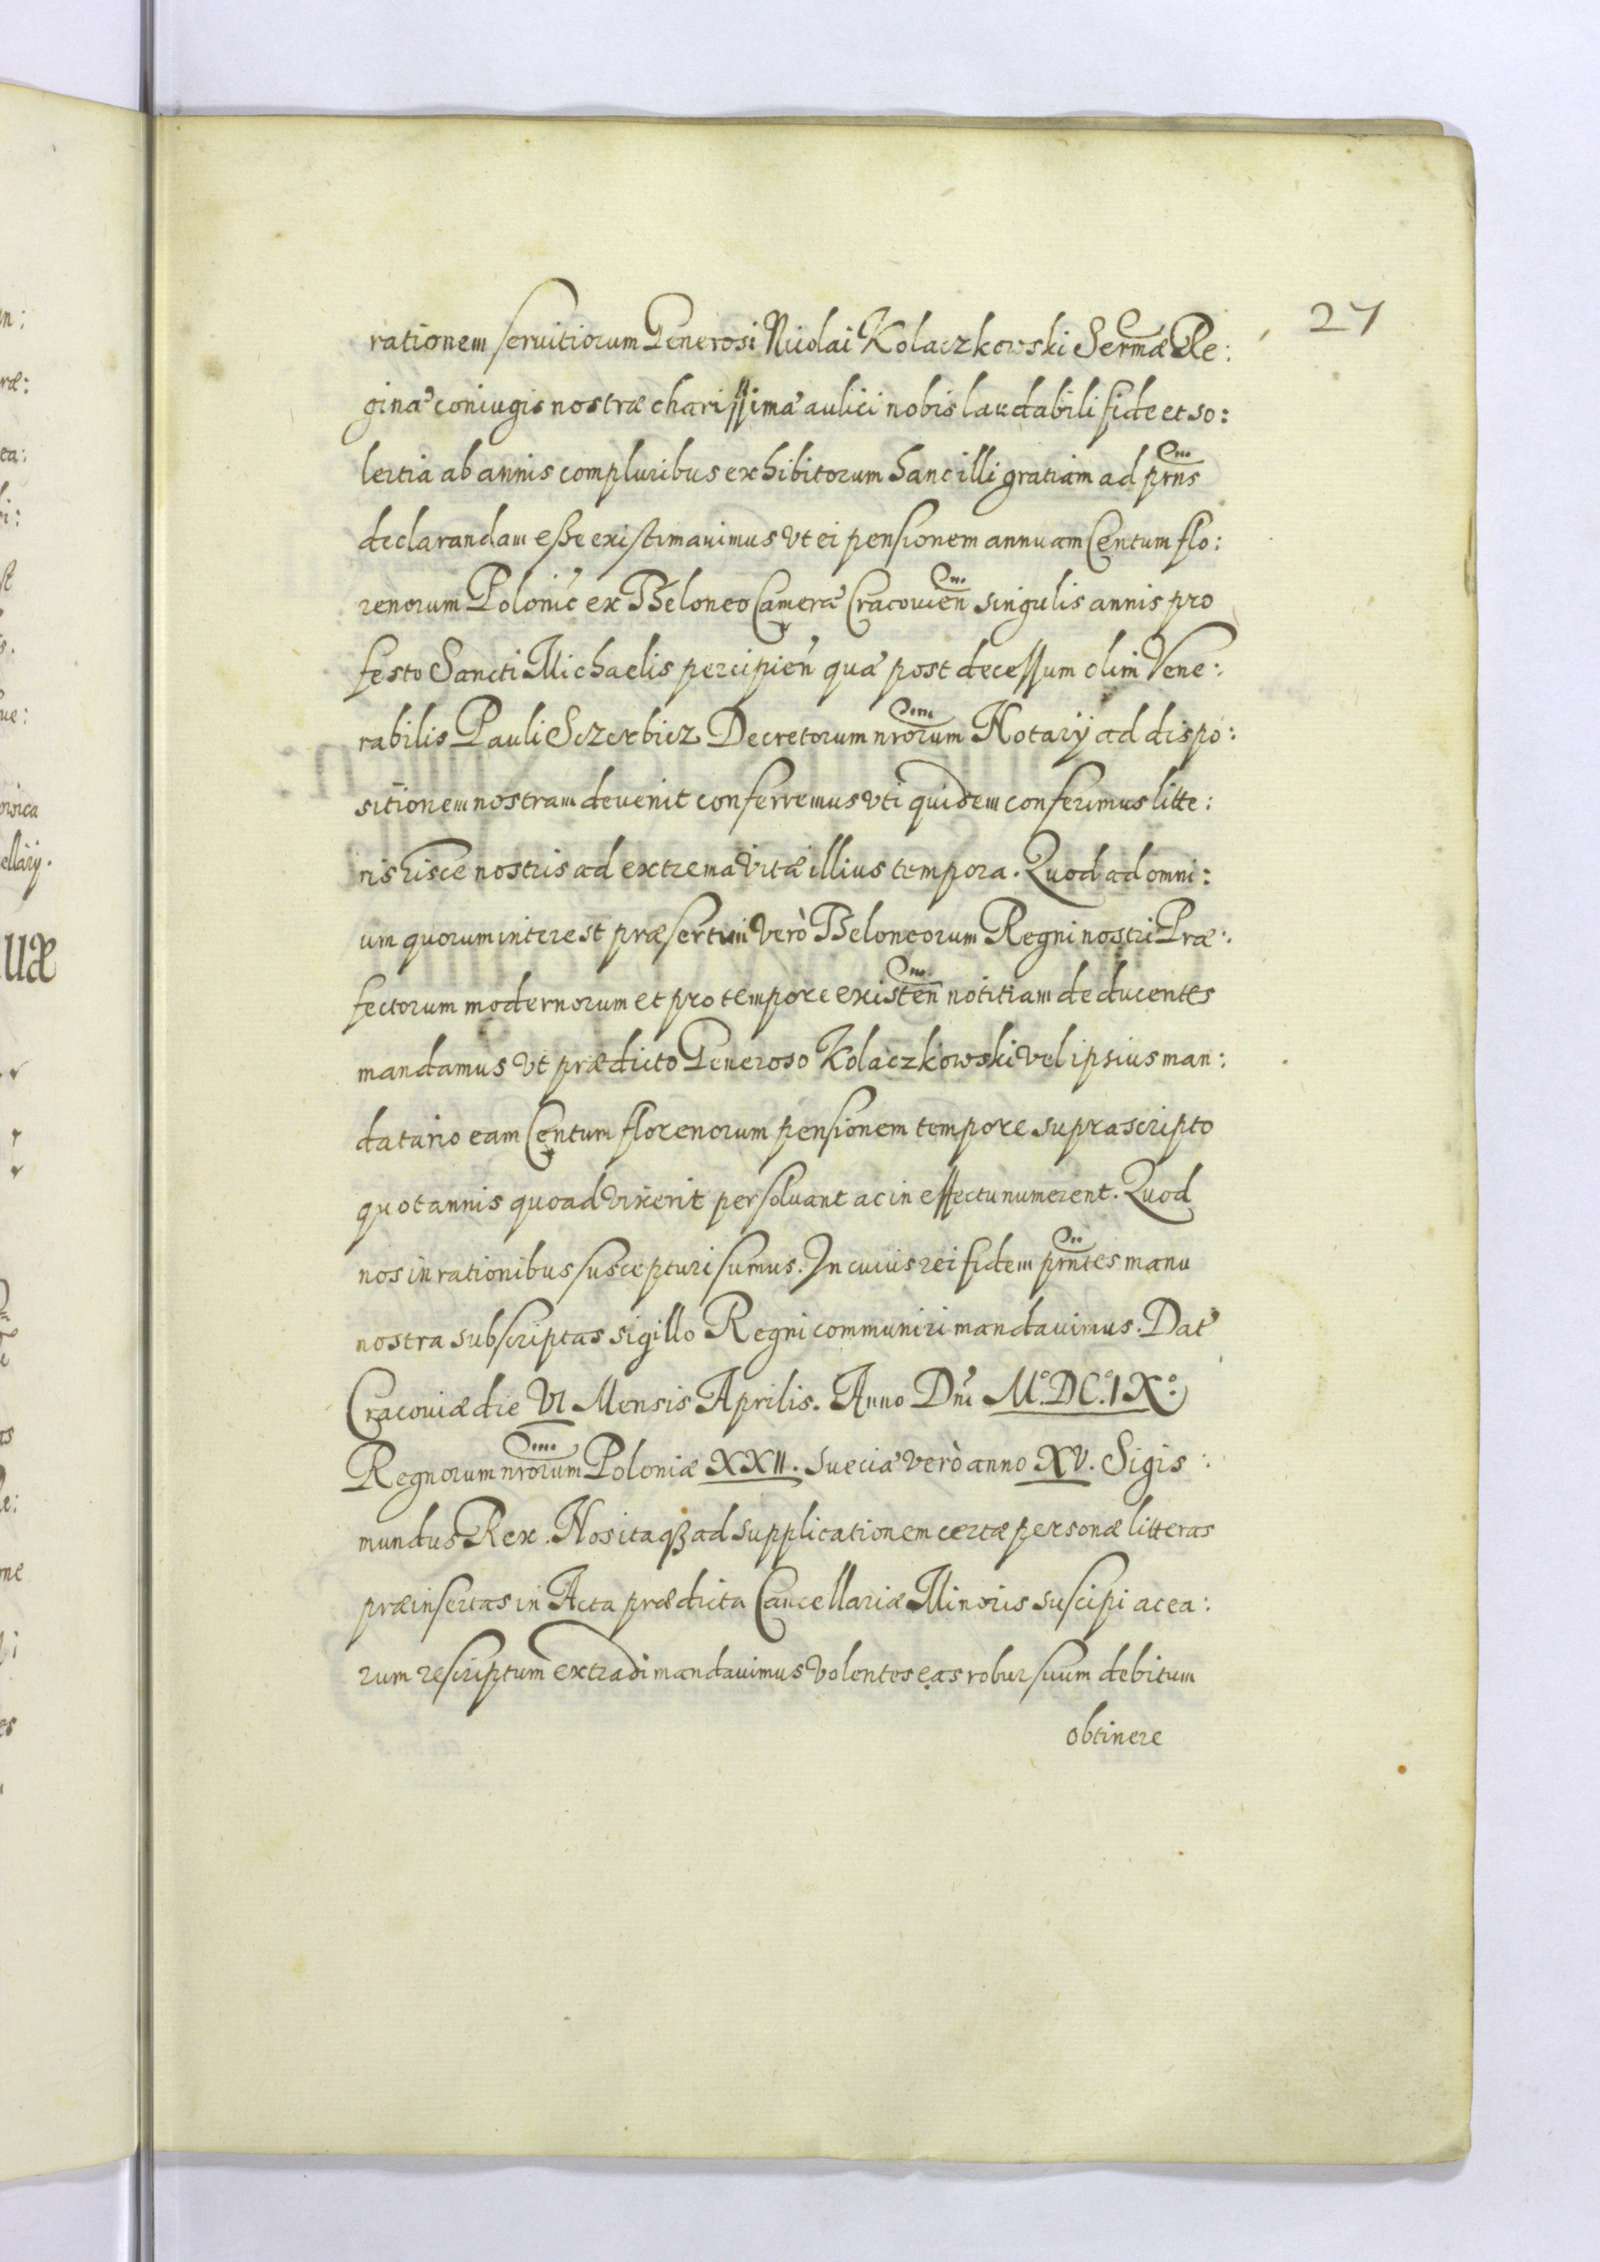 27
rationem seruitiorum Generosi Nicolai Kolaczkowski Sermæ Re:
ginæ coniugis nostræ charissimæ aulici nobis laudabili fide et so:
lertia ab annis compluribus exhibitorum hanc illi gratiam ad prns
declarandam esse existimauimus vt ei pensionem annuam Centum flo:
renorum Polonic ex Teloneo Cameræ Cracouien singulis annis pro
festo Sancti Michaelis percipien quæ post decessum olim Vene:
rabilis Pauli Sczerbicz Decretorum nrorum Notarÿ ad dispo:
sitionem nostram deuenit conferremus vti quidem conferimus litte:
ris hisce nostris ad extrema vitæ illius tempora. Quod ad omni:
um quorum interest præsertim verò Teloneorum Regni nostri Præ:
fectorum modernorum et pro tempore existen notitiam deducentes
mandamus vt prædicto Generoso Kolaczkowski vel ipsius man:
datario eam Centum florenorum pensionem tempore suprascripto
quotannis quoad vixerit persoluant ac in effectu numerent. Quod
nos in rationibus suscepturi sumus. In cuius rei fidem prntes manu
nostra subscriptas sigillo Regni communiri mandauimus. Dat
Cracouiæ die VI Mensis Aprilis. Anno Dni M°.DC°.IX°.
Regnorum nrorum Poloniæ XXII. Sueciæ verò anno XV. Sigis:
mundus Rex. Nos itaqꝫ ad supplicationem certæ personæ litteras
præinsertas in Acta prædicta Cancellariæ Minoris suscipi ac ea:
rum rescriptum extradi mandauimus volentes eas robur suum debitum
obtinere